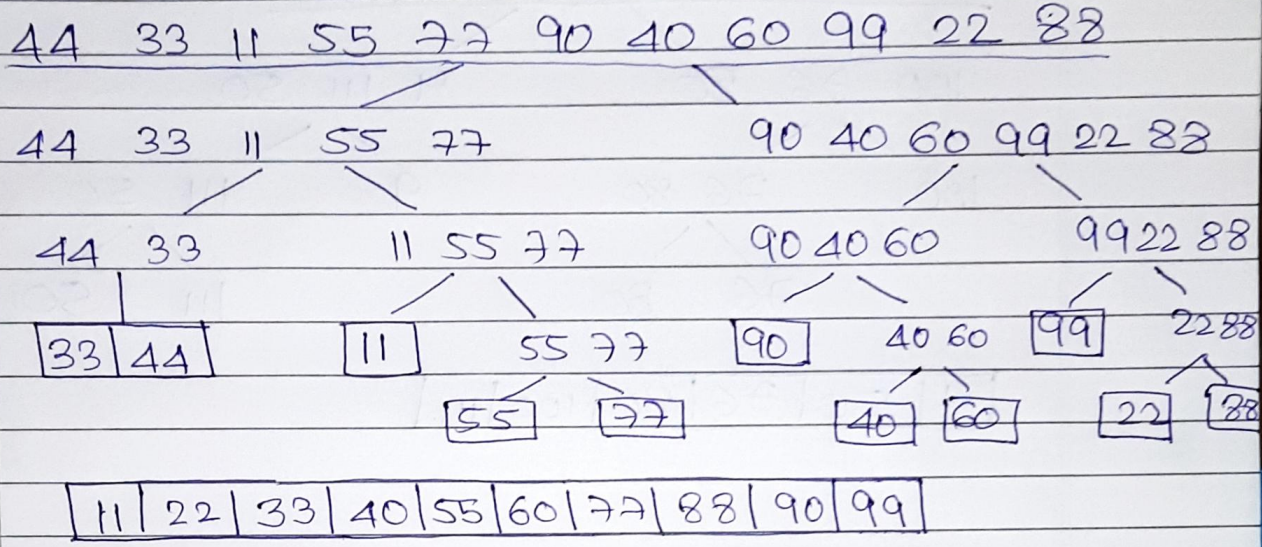 44 33 11 55 77 90 40 60 99 22 88
44 33 11 55 77 90 40 60 99 22 88
44 33 11 55 77 90 40 60 99 22 88
33 44 11 55 77 90 40 60 99 22 88
55 77 40 60 22 88
11 22 33 40 55 60 77 88 90 99